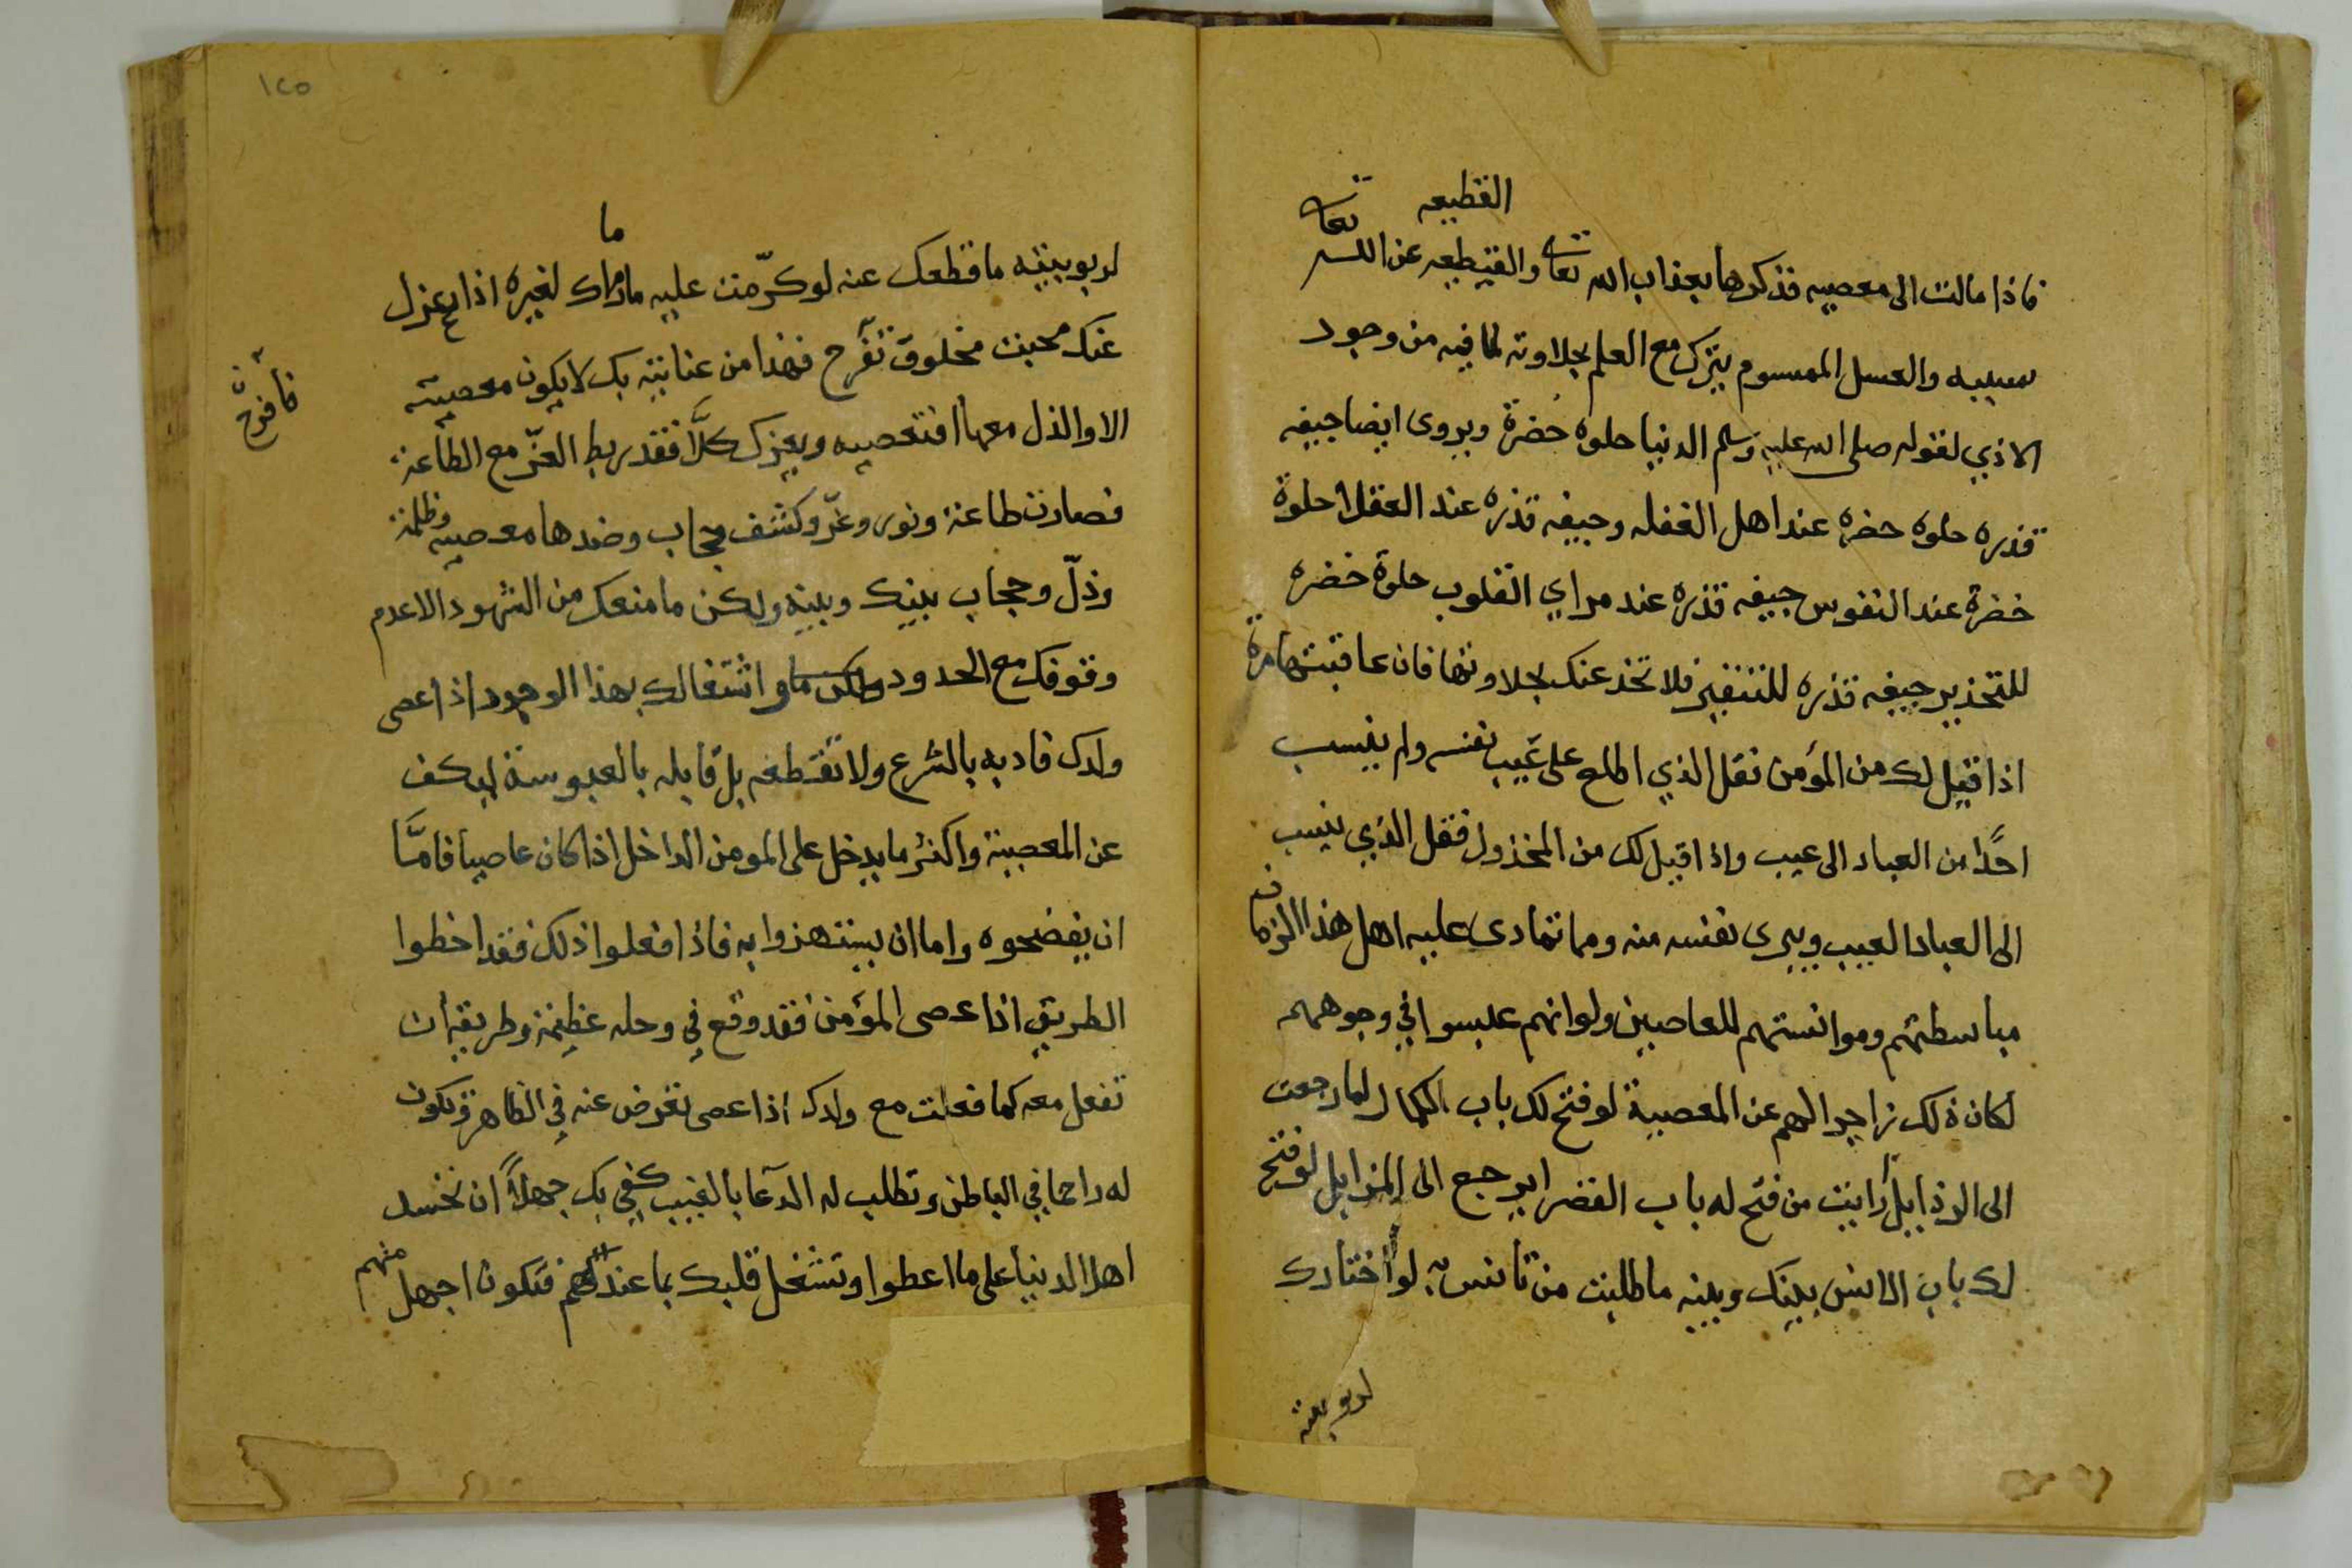 القطيعه
فاذا مالت الى معصيه فذكرها بعذاب الله تعالى والقيطيعه عن الله تعالى
بسببه والعسل المسموم يترك مع العلم بحلاوته لما فيه من وجود
الاذي لقوله صلى الله عليه وسلم الدنيا حلوه خضرة ويروى ايضا جيفه
قذره حلوه خضره عند اهل الغفله وجيفه قذره عند العقلا حلوة
خضرة عند النفوس جيفه قذره عند مراي القلوب حلوة خضره
للتحذير جيفه قذره للتنفير فلا تخدعنك بحلاوتها فان عاقبتها مرة
اذا قيل لك من المؤمن فقل الذي اطلع على عيب نفسه ولم ينسب
احدًا من العباد الى عيب واذا قيل لك من المخذول فقل الذي ينسب
الى العباد العيب ويبرى نفسه منه ومما تمادى عليه اهل هذا الزمان
مباسطتهم وموانستهم للعاصين ولو انهم عبسوا في وجوههم
لكان ذلك زاجرا لهم عن المعصية لو فتح لك باب الكمال لما رجعت
الى الرذايل أرايت من فتح له باب القصر ايرجع الى المزابل لو فتح
لك باب الانس بينك وبينه ما طلبت من تانس به لو اختارك
لربوبيته
١٢٥
ما
لربوبيته ما قطعك عنه لو كرّمت عليه ما رماك لغيره اذا عزل
عنك محبت مخلوق تفرح فهذا من عنايته بك لا يكون معصيته
فأفرح
الا والذل معها افتعصيه ويعزك كلَّا فقد ربط العزّ مع الطاعة
فصارت طاعة ونور وعزّ وكشف حجاب وضدها معصيه وظلمة
وذلّ وحجاب بينك وبينه ولكن ما منعك من الشهود الا عدم
وقوفك مع الحدود واشتغالك بهذا الوجود اذا عصى
ولدك فادبه بالشرع ولا تقطعه بل قابله بالعبوسة ليكف
عن المعصية واكثر ما يدخل على المومن الداخل اذا كان عاصيا فامَّا
ان يفضحوه واما ان يستهزوا به فاذا فعلوا ذلك فقد اخطوا
الطريق اذا عصى المؤمن فقد وقع في وحله عظيمة وطريقه ان
تفعل معه كما فعلت مع ولدك اذا عصى تعرض عنه في الظاهر وتكون
له راحما في الباطن وتطلب له الدعا بالغيب كفى بك جهلًا ان تحسد
اهل الدنيا على ما اعطوا وتشغل قلبك بما عندهم فتكون اجهل منهم